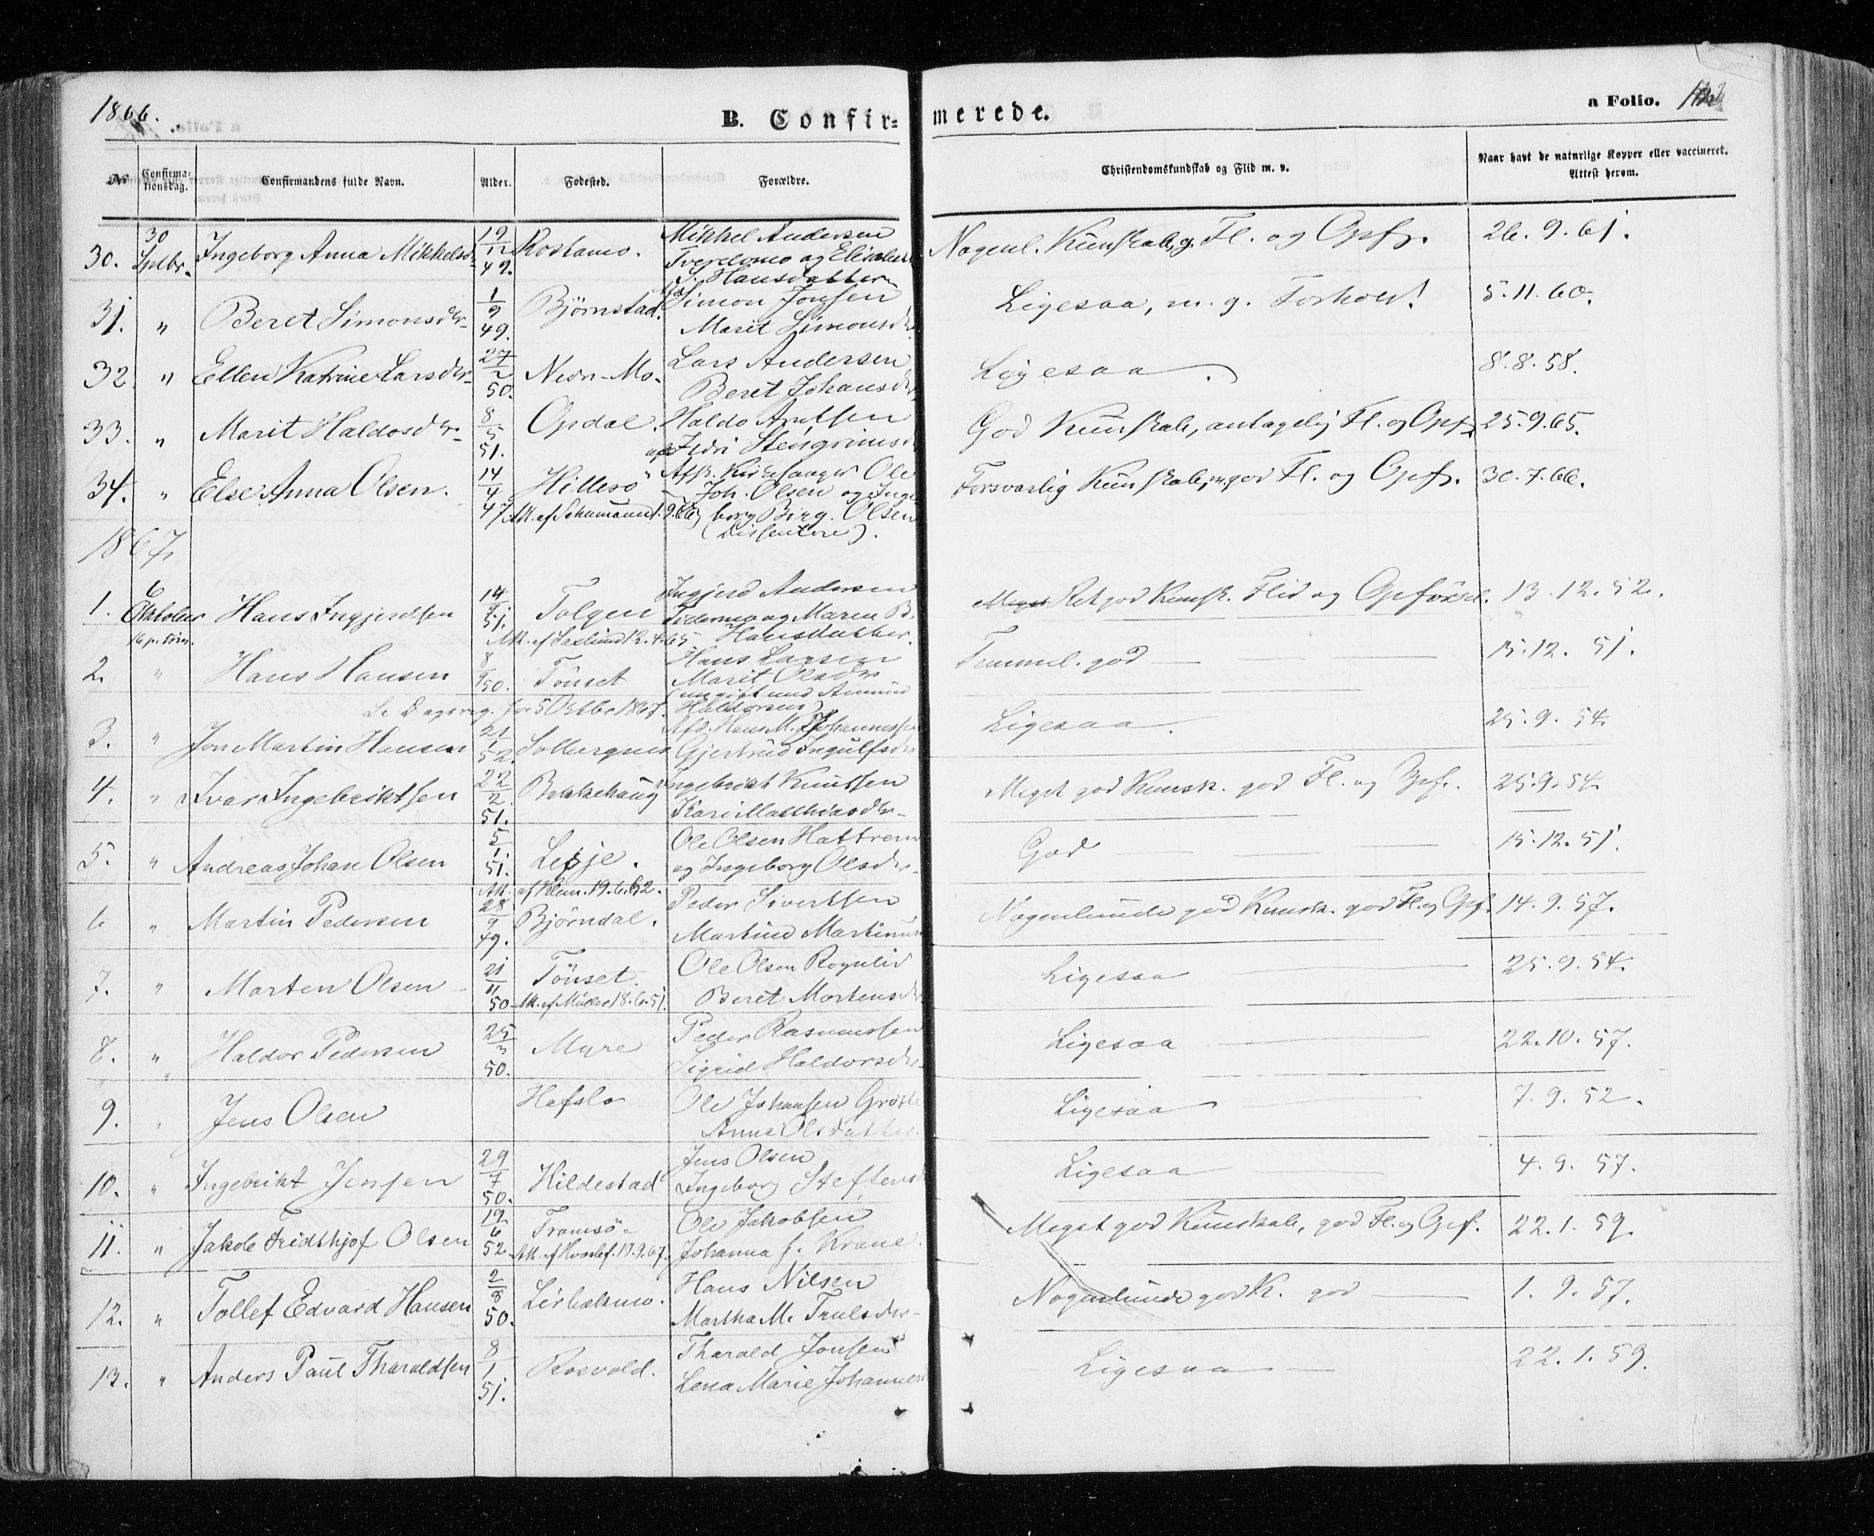 1866.
B. Confirmerede.
a Folio.
No
Confirmationsdag.
Confirmandens fulde Navn.
Alder.
Fødested.
Forældre.
Christendomskundskab og Flid m. v.
Naar havt de naturlige Kopper eller vaccineret.
Attest herom.
30. 30 Sptbr. Ingeborg Anna Mikkelsd 19/12 49. Rostamo. Mikkel Andersen
og Elisabeth
S. Hansdatter
Nogenl. Kunskab, g. Fl. og Opf. 26.9.61.
31. " Beret Simonsdr 1/9 49. Bjørnstad. Simon Jonsen
Marit Simonsdr
Ligesaa, m. g. Forhold! 5.11.60.
32. " Ellen Katrine Larsdr 27/2 50. Nedr-Mo. Lars Andersen
Beret Johansdr
Ligesaa. 8.8.58.
33. " Marit Haldosdr 8/5 51. Opdal. Haldo Arntsen
Stengrimsd
God Kunskab, antagelig Fl. og Opf. 25.9.65.
34. " Else Anna Olsen. 14/4 47. Hillesö Afsk. Kirkesanger Ole
Joh. Olsen og Inge
borg Birg. Olsen
(Dissentere).
Att. af Schumann 1.9.66
Forsvarlig Kunskab, m. god Fl. og Opf. 30.7.66.
1867.
1. 6 Oktober Hans Ingjerdtsen 14/ 51. Tolgen Ingjerd Andersen
og Maren B.
Hansdatter.
Att. af Saxlund 12.4.65
Meget Ret god Kunsk. Flid og Opförsel. 13.12.52.
2. " Hans Hansen 8/9 50. Tönset Hans Larsen
Marit Olsdr
(ungift med Amund
Haldorsen)
Temmel. god 15.12.51.
Se Dagsreg. for 5 Oktbr 1867.
3. " Jon Martin Hansen 21/1 52. Solbergnes Afd. Hans M. Johannessen
Gjertrud Ingulfsdr
Ligesaa. 25.9.54.
4. " Ivar Ingebriktsen 22/2 51. Bakkehaug Ingebrikt Knutsen
Kari Matthiasdr
Meget god Kunsk. god Fl. og Opf. 25.9.54.
5. " Andreas Johan Olsen 5/1 51. Lesje. Ole Olsen Hattrem
og Ingeborg Olsdr
God 15.12.51.
Att. af Klem. 19.6.62.
6 " Martin Pedersen 28/9 49. Bjørndal. Peder Sivertsen
Martine Martinus
Nogenlunde god Kunsk. god Fl. og Opf. 14.9.57.
7. " Morten Olsen 21/11 50 Tönset. Ole Olsen Rognlid
Att. af Müller 18.6.51. Beret Mortensdr
Ligesaa 25.9.54.
8. " Haldor Pedersen 25/3 50. Myre Peder Rasmussen
Sigrid Haldorsdr
Ligesaa 22.10.57.
9. " Jens Olsen Hafslo Ole Johansen
Anna Olsdatter
Ligesaa 7.9.52.
10. " Ingebrikt Jensen 29/7 50. Hildestad Jens Olsen
Ingeborg Steffens
Ligesaa 4.9.57.
11. " Jakob Fridthjof Olsen 19/6 52. Tromsö Ole Jakobsen
Att. af Hvoslef. 19.9.67. Johanna f. Krane.
Meget god Kunskab, god Fl. og Opf. 22.1.59.
12. " Tollef Edvard Hansen 2/8 50. Lerbakmo. Hans Nilsen
Martha M. Trulsdr
Nogenlunde god K. god 1.9.57.
13. " Anders Paul Tharaldsen 8/1 51. Rosvold. Tharald Jonsen
Lena Marie Johannes
Ligesaa 22.1.59.